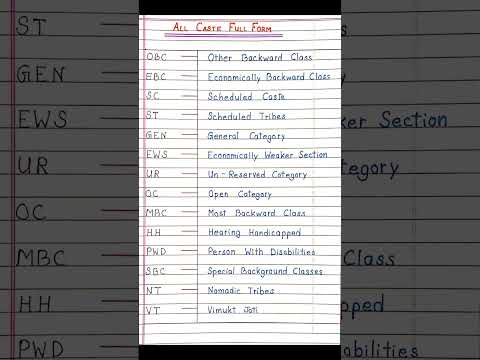 ALL CASTE FULL FORM
OBC — Other Backward Class
EBC — Economically Backward Class
SC — Scheduled Caste
ST — Scheduled Tribes
GEN — General Category
EWS — Economically Weaker Section
UR — Un-Reserved Category
OC — Open Category
MBC — Most Backward Class
HH — Hearing Handicapped
PWD — Person With Disabilities
SBC — Special Background Classes
NT — Nomadic Tribes
VT — Vimukt Jati
ST
GEN
EWS
UR
OC
MBC
HH
PWD
ker Section
tegory
Class
pped
abilities